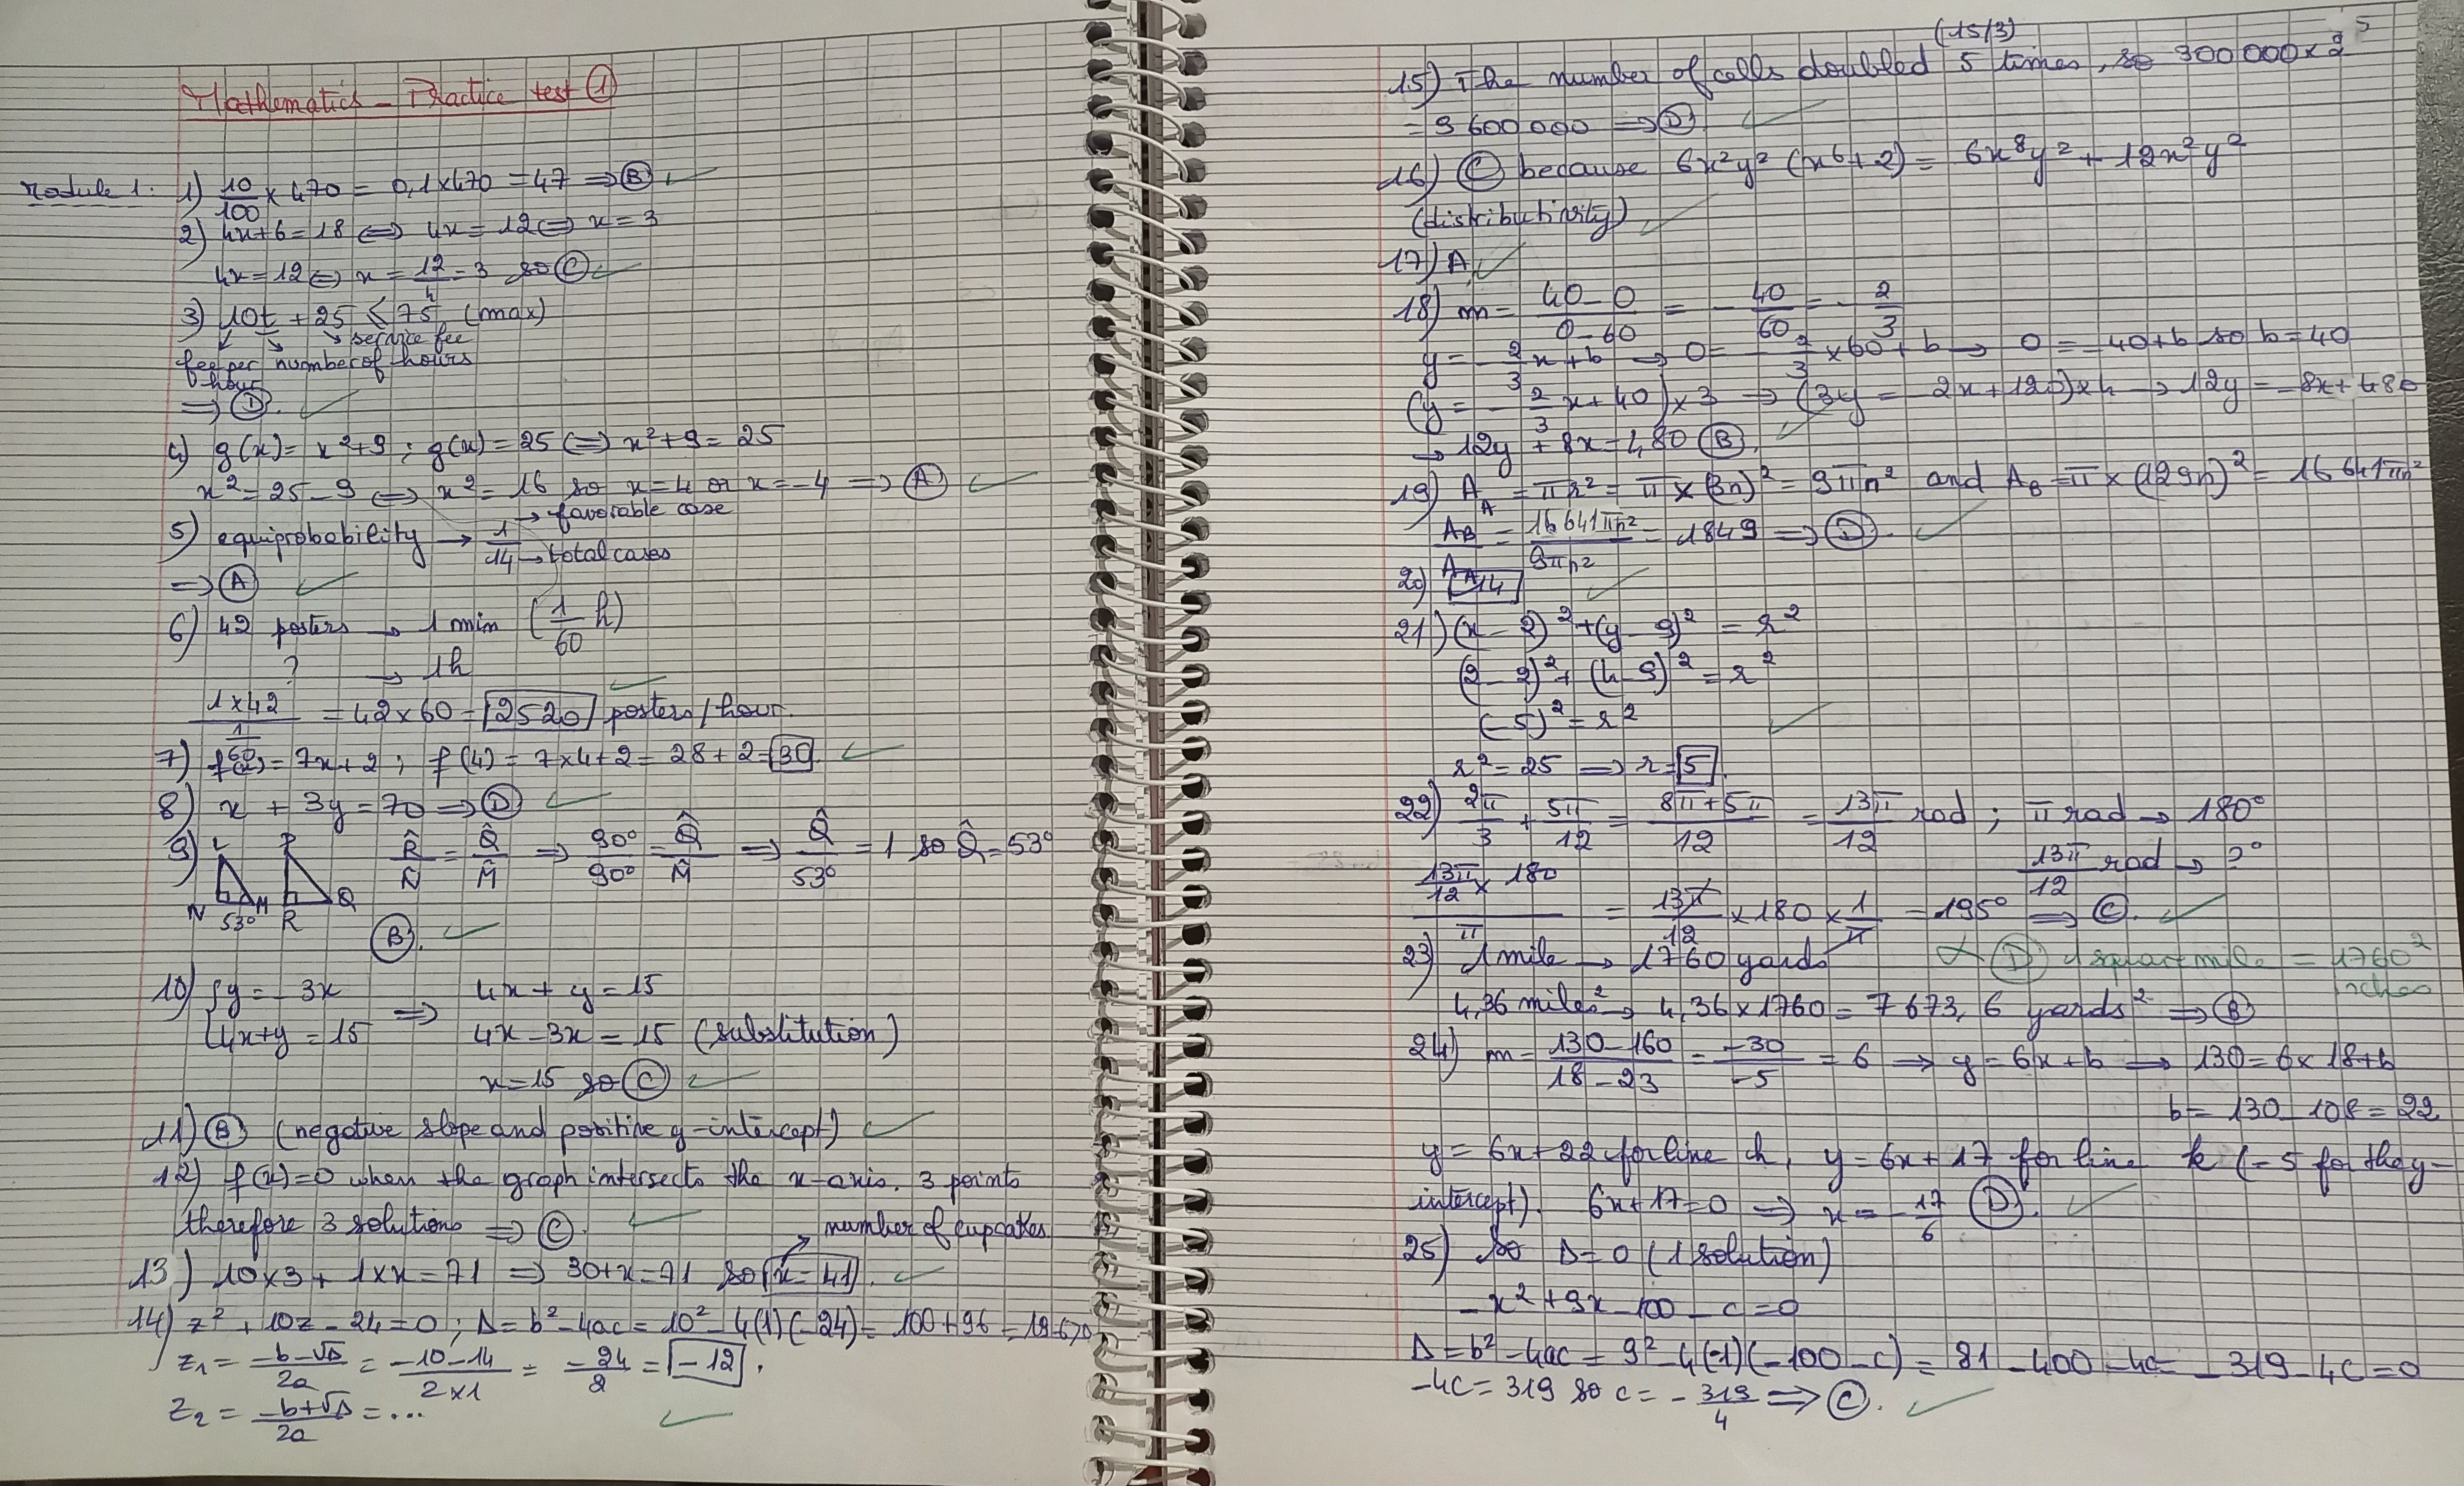 Mathematics - Practice test ①
Module 1: 1) 10/100 × 470 = 0,1×470 = 47 ⇒ Ⓑ ✓
2) 4x+6=18 ⇔ 4x = 12 ⇔ x = 3
4x=12 ⇔ x = 12/4 = 3 so Ⓒ ✓
3) 10t + 25 ≤ 75 (max)
↘ service fee
fee per number of hours
hour
⇒ Ⓓ. ✓
4) g(x) = x²+9 ; g(x) = 25 ⇔ x²+9 = 25
x² = 25-9 ⇔ x² = 16 so x=4 or x=-4 ⇒ Ⓐ ✓
5) equiprobability → 1/14 → favorable case
→ total cases
⇒ Ⓐ ✓
6) 42 posters → 1 min (1/60 h)
? → 1h
1×42 / (1/60) = 42×60 = 2520 posters/hour. ✓
7) f(x) = 7x+2 ; f(4) = 7×4+2 = 28+2 = 30. ✓
8) x + 3y = 70 ⇒ Ⓓ ✓
9) L P R̂/N̂ = Q̂/M̂ ⇒ 90°/90° = Q̂/M̂ ⇒ Q̂/53° = 1 so Q̂ = 53°
N 53° M R Q
Ⓑ. ✓
10) { y = -3x ⇒ 4x + y = 15
4x+y = 15 4x - 3x = 15 (substitution)
x = 15 so Ⓒ ✓
11) Ⓑ (negative slope and positive y-intercept) ✓
12) f(x)=0 when the graph intersects the x-axis. 3 points
therefore 3 solutions ⇒ Ⓒ. ✓
→ number of cupcakes
13) 10×3 + 1×x = 71 ⇒ 30+x = 71 so x = 41. ✓
14) z² + 10z - 24 = 0 ; Δ = b² - 4ac = 10² - 4(1)(-24) = 100+96 = 196>0
z₁ = (-b-√Δ)/2a = (-10-14)/(2×1) = -24/2 = -12.
z₂ = (-b+√Δ)/2a = ... ✓
(15/3)
15) The number of cells doubled 5 times, so 300 000×2⁵
= 9 600 000 ⇒ Ⓓ. ✓
16) Ⓒ because 6x²y² (x⁶+2) = 6x⁸y² + 12x²y²
(distributivity) ✓
17) A ✓
18) m = (40-0)/(0-60) = -40/60 = -2/3
y = -2/3 x + b → 0 = -2/3 × 60 + b → 0 = -40+b so b = 40
(y = -2/3 x + 40)×3 → (3y = -2x + 120)×4 → 12y = -8x + 480
→ 12y + 8x = 480 Ⓑ. ✓
19) A_A = πr² = π × (3n)² = 9πn² and A_B = π × (129n)² = 16 641πn²
A_B/A_A = 16 641πn²/9πn² = 1849 ⇒ Ⓓ. ✓
20) 14 ✓
21) (x - 2)² + (y - 9)² = r²
(2 - 2)² + (4-9)² = r²
(-5)² = r² ✓
r² = 25 ⇒ r = 5.
22) 2π/3 + 5π/12 = (8π+5π)/12 = 13π/12 rad ; π rad → 180°
13π/12 rad → ?°
(13π/12 × 180)/π = 13π/12 × 180 × 1/π = 195° ⇒ Ⓒ. ✓
23) 1 mile → 1760 yards ✗ Ⓓ 1 square mile = 1760²
inches
4,36 miles² → 4,36×1760 = 7 673,6 yards² ⇒ Ⓑ
24) m = (130-160)/(18-23) = -30/-5 = 6 → y = 6x + b → 130 = 6×18+b
b = 130-108 = 22
y = 6x+22 for line h, y = 6x+17 for line k (-5 for the y-
intercept). 6x+17=0 ⇒ x = -17/6 Ⓓ. ✓
25) so Δ=0 (1 solution)
-x²+9x-100-c=0
Δ = b²-4ac = 9²-4(-1)(-100-c) = 81-400-4c = -319-4c=0
-4c = 319 so c = -319/4 ⇒ Ⓒ. ✓